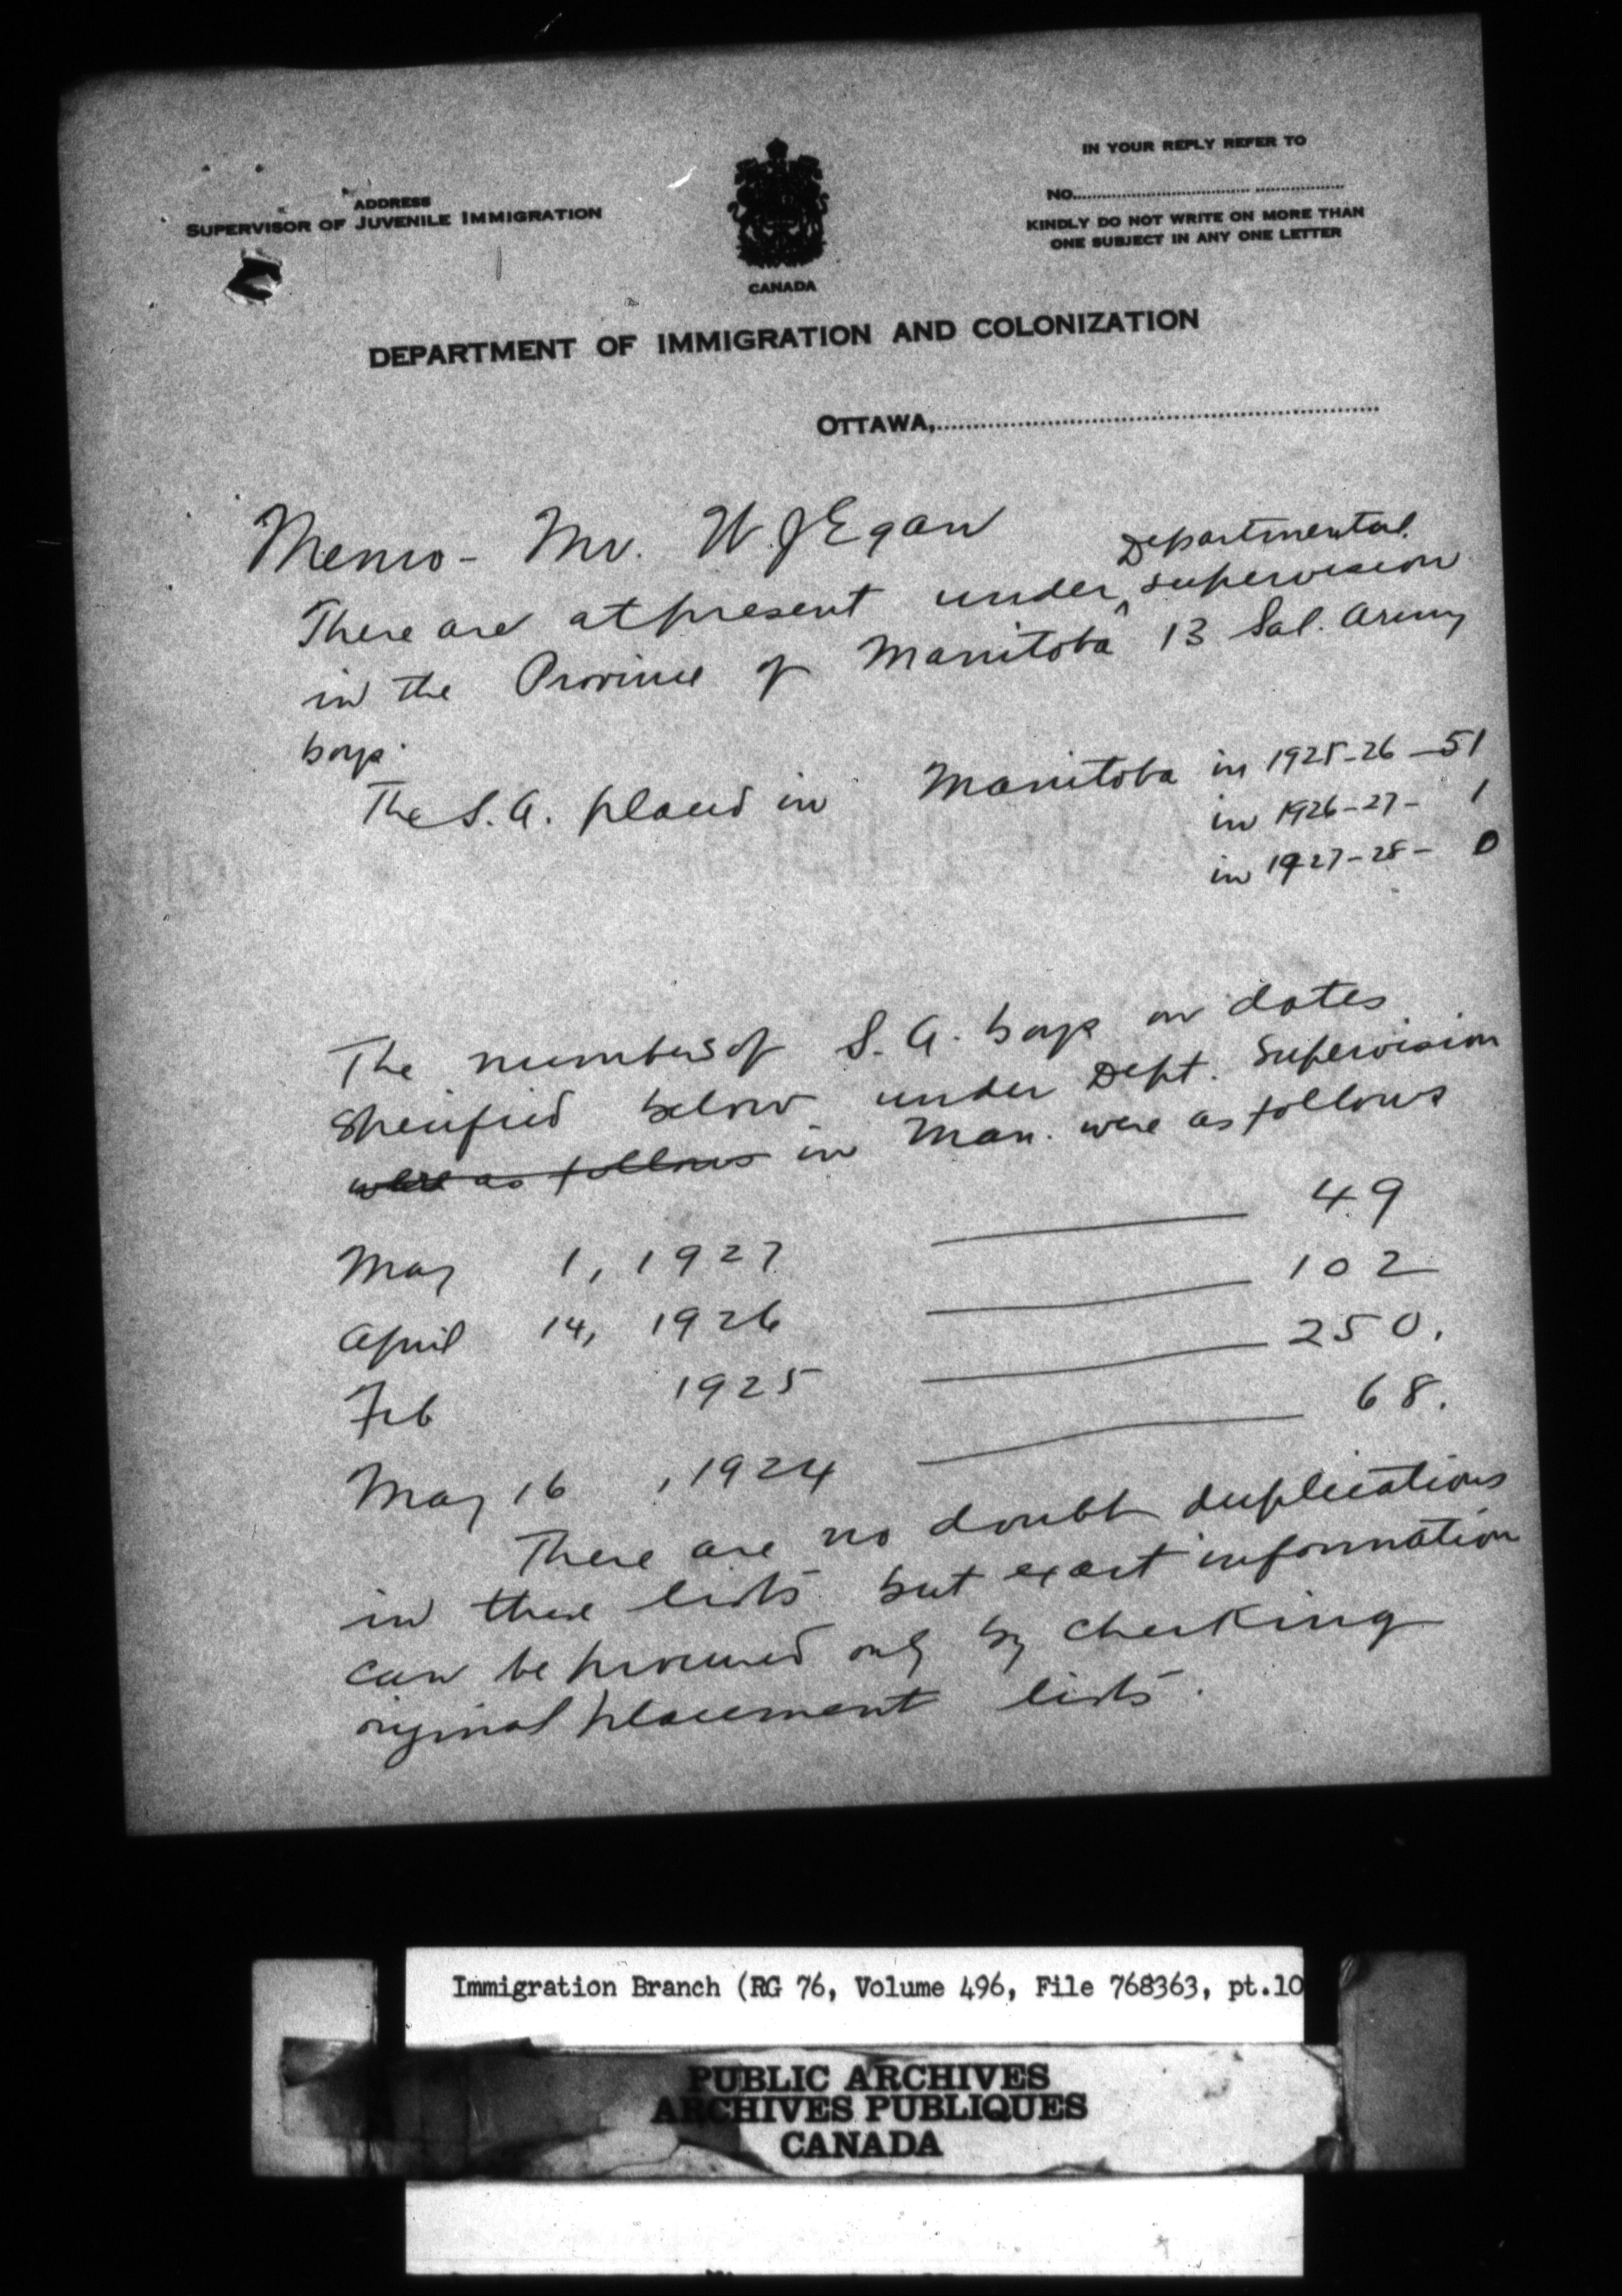 ADDRESS
SUPERVISOR OF JUVENILE IMMIGRATION
CANADA
IN YOUR REPLY REFER TO
No.
KINDLY DO NOT WRITE ON MORE THAN
ONE SUBJECT IN ANY ONE LETTER
DEPARTMENT OF IMMIGRATION AND COLONIZATION
OTTAWA,
Memo - Mr. W. J Egan
There are at present under Departmental supervision
in the Province of Manitoba 13 Sal. Army
boys.
The S.A. placed in Manitoba in 1925-26 - 51
in 1926-27 - 1
in 1927-28 - 0
The numbers of S.A. boys on dates
specified below under Dept. Supervision
were as follows in Man. were as follows
May 1, 1927 — 49
April 14, 1926 — 102
Feb 1925 — 250.
May 16, 1924 — 68.
There are no doubt duplications
in these lists but exact information
can be procured only by checking
original placement lists.
Immigration Branch (RG 76, Volume 496, File 768363, pt.10
PUBLIC ARCHIVES
ARCHIVES PUBLIQUES
CANADA